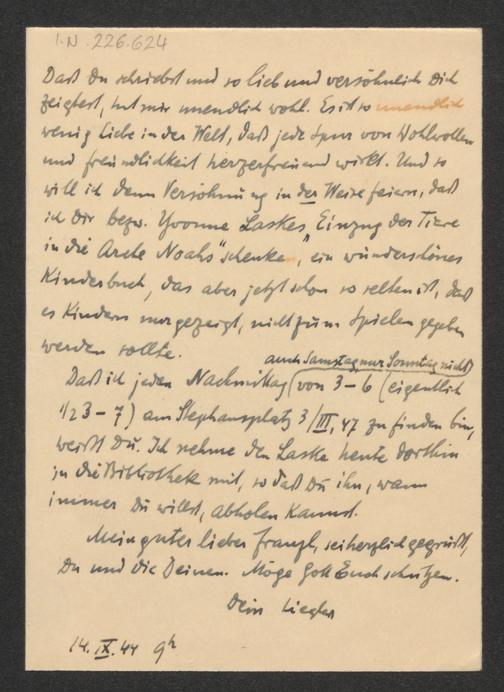 I.N. 226.624
Daß Du schriebst und so lieb und versöhnlich Dich
zeigtest, tut mir unendlich wohl. Es ist so unendlich
wenig Liebe in der Welt, daß jede Spur von Wohlwollen
und Freundlichkeit herzerfreuend wirkt. Und so
will ich denn Versöhnung in der Weise feiern, daß
ich Dir bezw. Yvonne Laskes „Einzug der Tiere
in die Arche Noahs" schenke, ein wunderschönes
Kinderbuch, das aber jetzt schon so selten ist, daß
es Kindern nur gezeigt, nicht zum Spielen gegeben
werden sollte.
auch Samstag nur Sonntag nicht
Daß ich jeden Nachmittag (von 3-6 (eigentlich
1/2 3-7) am Stephansplatz 3/III, 47 zu finden bin,
weißt Du. Ich nehme den Laske heute dorthin
in die Bibliothek mit, so daß Du ihn, wann
immer Du willst, abholen kannst.
Mein guter lieber Franzl, sei herzlich gegrüßt,
Du und die Deinen. Möge Gott Euch schützen.
Dein Liegler
14.IX.44 9h